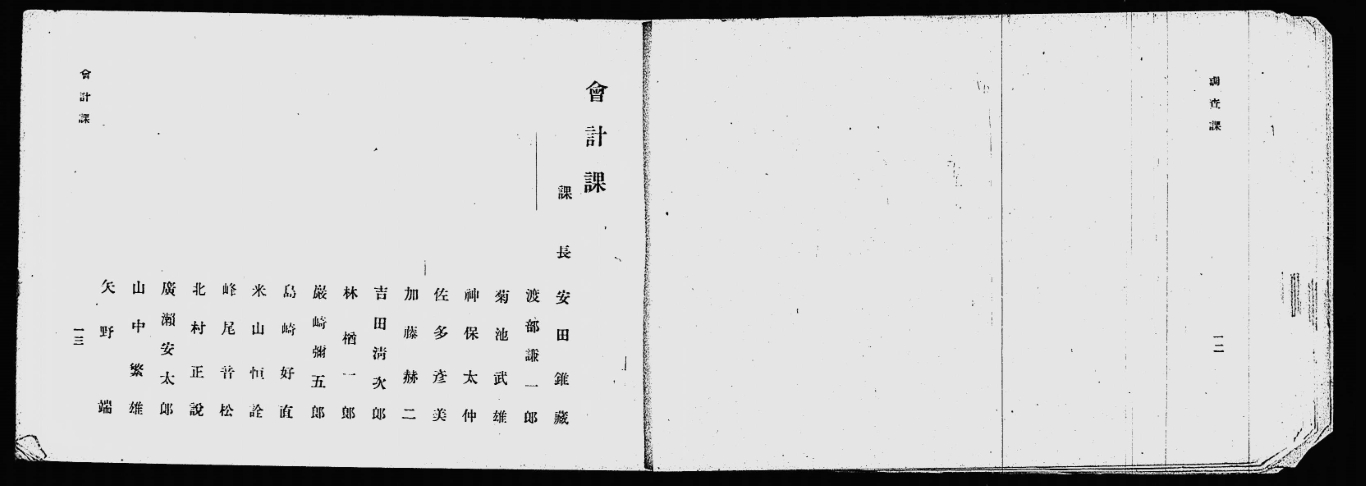 調查課
一二
會計課
課長 安田錐藏
渡部謙一郎
菊池武雄
神保太仲
佐多彥美
加藤赫二
吉田淸次郎
林楢一郎
嚴崎彌五郎
島崎好直
米山恒詮
峰尾音松
北村正說
廣瀨安太郎
山中繁雄
矢野端
會計課
一三